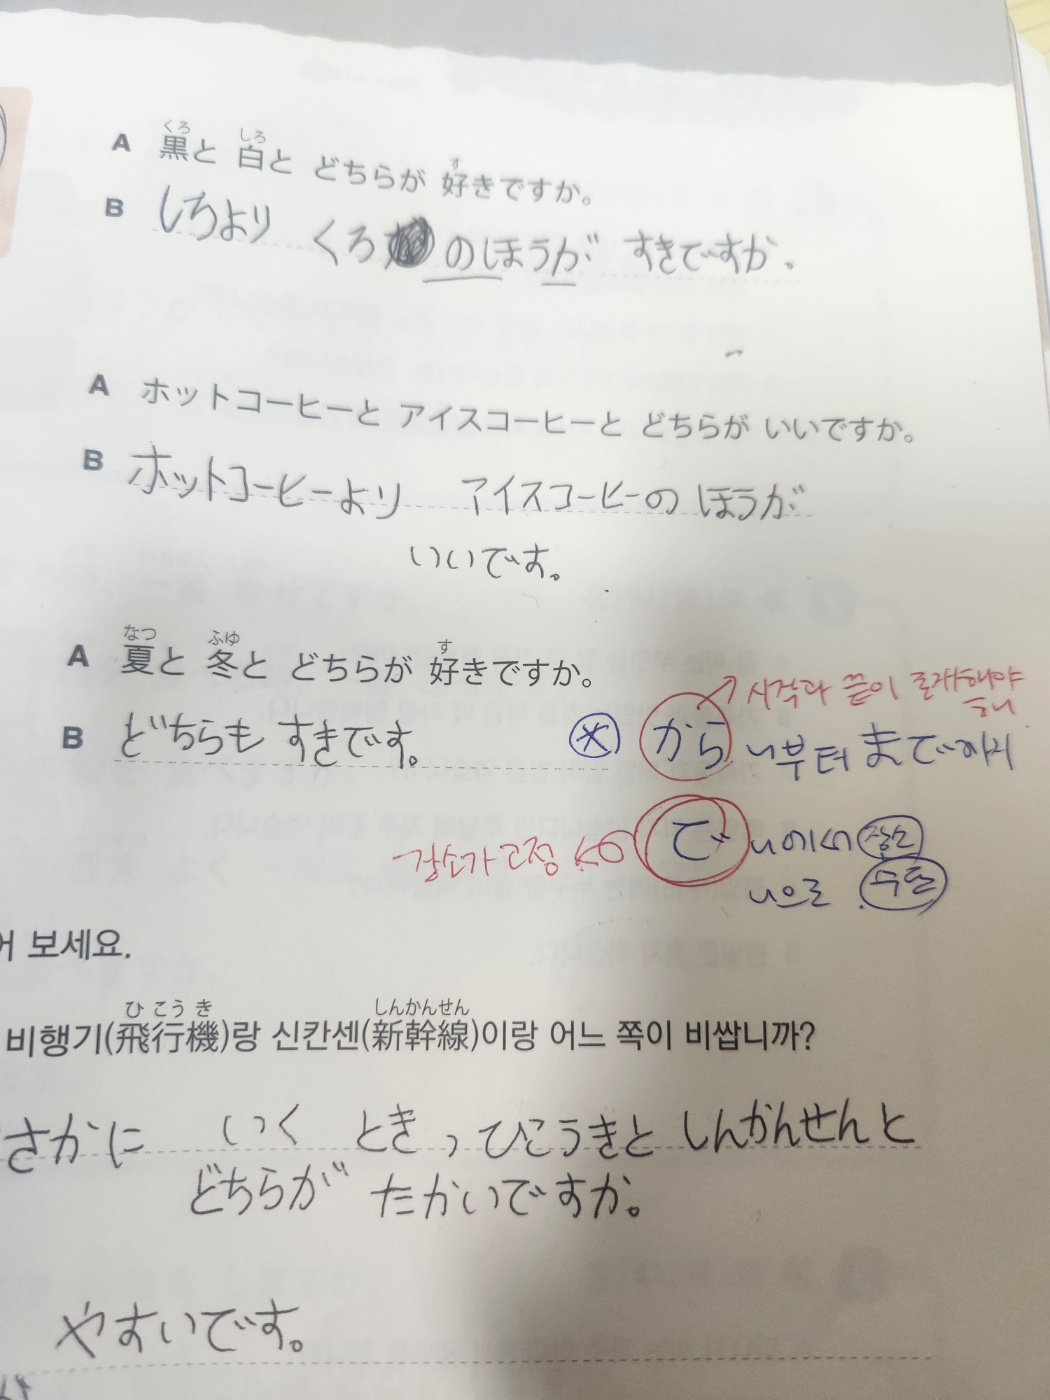 A 黒(くろ)と 白(しろ)と どちらが 好(す)きですか。
B しろより くろ のほうが すきですか。
A ホットコーヒーと アイスコーヒーと どちらが いいですか。
B ホットコーヒーより アイスコーヒーの ほうが
いいです。
A 夏(なつ)と 冬(ふゆ)と どちらが 好(す)きですか。
B どちらも すきです。
→ 시작과 끝이 존재해야
하니
* から ~부터 まで ~까지
で ~에서 장소
~으로 수단
어 보세요.
비행기(飛行機(ひこうき))랑 신칸센(新幹線(しんかんせん))이랑 어느 쪽이 비쌉니까?
さかに いく とき, ひこうきと しんかんせんと
どちらが たかいですか。
やすいです。